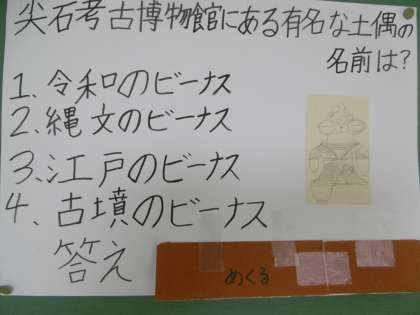 尖石考古博物館にある有名な土偶の
名前は?
1.令和のビーナス
2.縄文のビーナス
3.江戸のビーナス
4.古墳のビーナス
答え
めくる